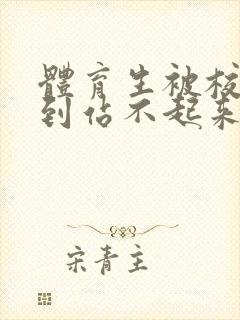 體育生被校
到佔不起來
宋青主